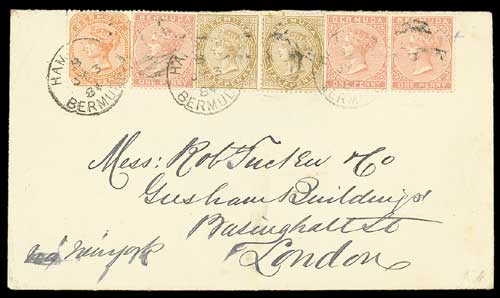 BERMUDA BERMUDA BERMUDA BERMUDA
ONE PENNY ONE PENNY
HAM
84
BERMUD
BERMUD
Mess: Robt Tucker & Co
Gresham Buildings
Basinghall St
London
via Newyork